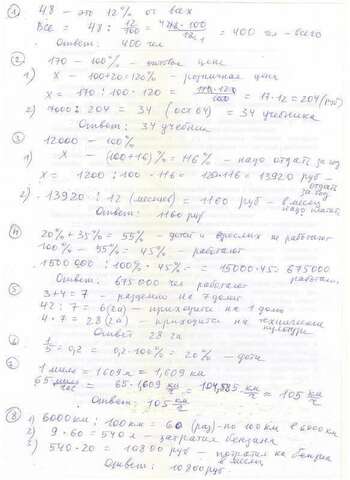 ① 48 – это 12% от всех
Все = 48 : 12/100 = 48·100/12 = 400 чел – всего
Ответ: 400 чел
②
170 – 100% – оптовая цена
1) x – 100+20=120% – розничная цена
x = 170 : 100 · 120 = 170·120/100 = 17·12 = 204 (руб)
2) 7000 : 204 = 34 (ост 64) = 34 учебника
Ответ: 34 учебник
③
12000 – 100%
1) x – (100+16)% = 116% – надо отдать за год
x = 1200 : 100 · 116 = 120·116 = 13920 руб – отдать за год
2) 13920 : 12 (месяцев) = 1160 руб – в месяц надо платить
Ответ: 1160 руб
④
20% + 35% = 55% – детей и взрослых не работают
100% – 55% = 45% – работают
1500 000 : 100% · 45% = 15000·45 = 675000 работают
Ответ: 675000 чел работают
⑤
3+4 = 7 – разделено на 7 долей
42 : 7 = 6 (га) – приходится на 1 долю
4 · 7 = 28 (га) – приходится на технические культуры
Ответ 28 га
6 1/5 = 0,2 = 0,2·100% = 20% – дети
7
1 миля = 1609 м = 1,609 км
65 миль/час = 65 · 1,609 км/ч = 104,585 км/ч = 105 км/ч
Ответ: 105 км/ч
⑧ 1) 6000 км : 100 км = 60 (раз) – по 100 км в 6000 км
2) 9 · 60 = 540 л – затратил бензина
3) 540 · 20 = 10800 руб – потратил на бензин
Ответ: 10800 руб.